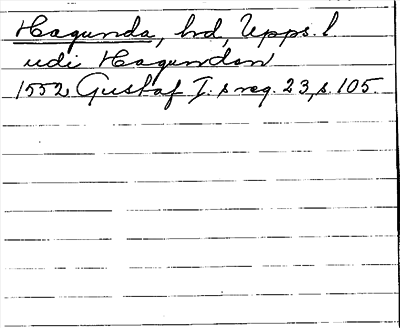 Hagunda, hd, Upps. l.
udi Hagundan
1552 Gustaf I:s reg. 23, s. 105.